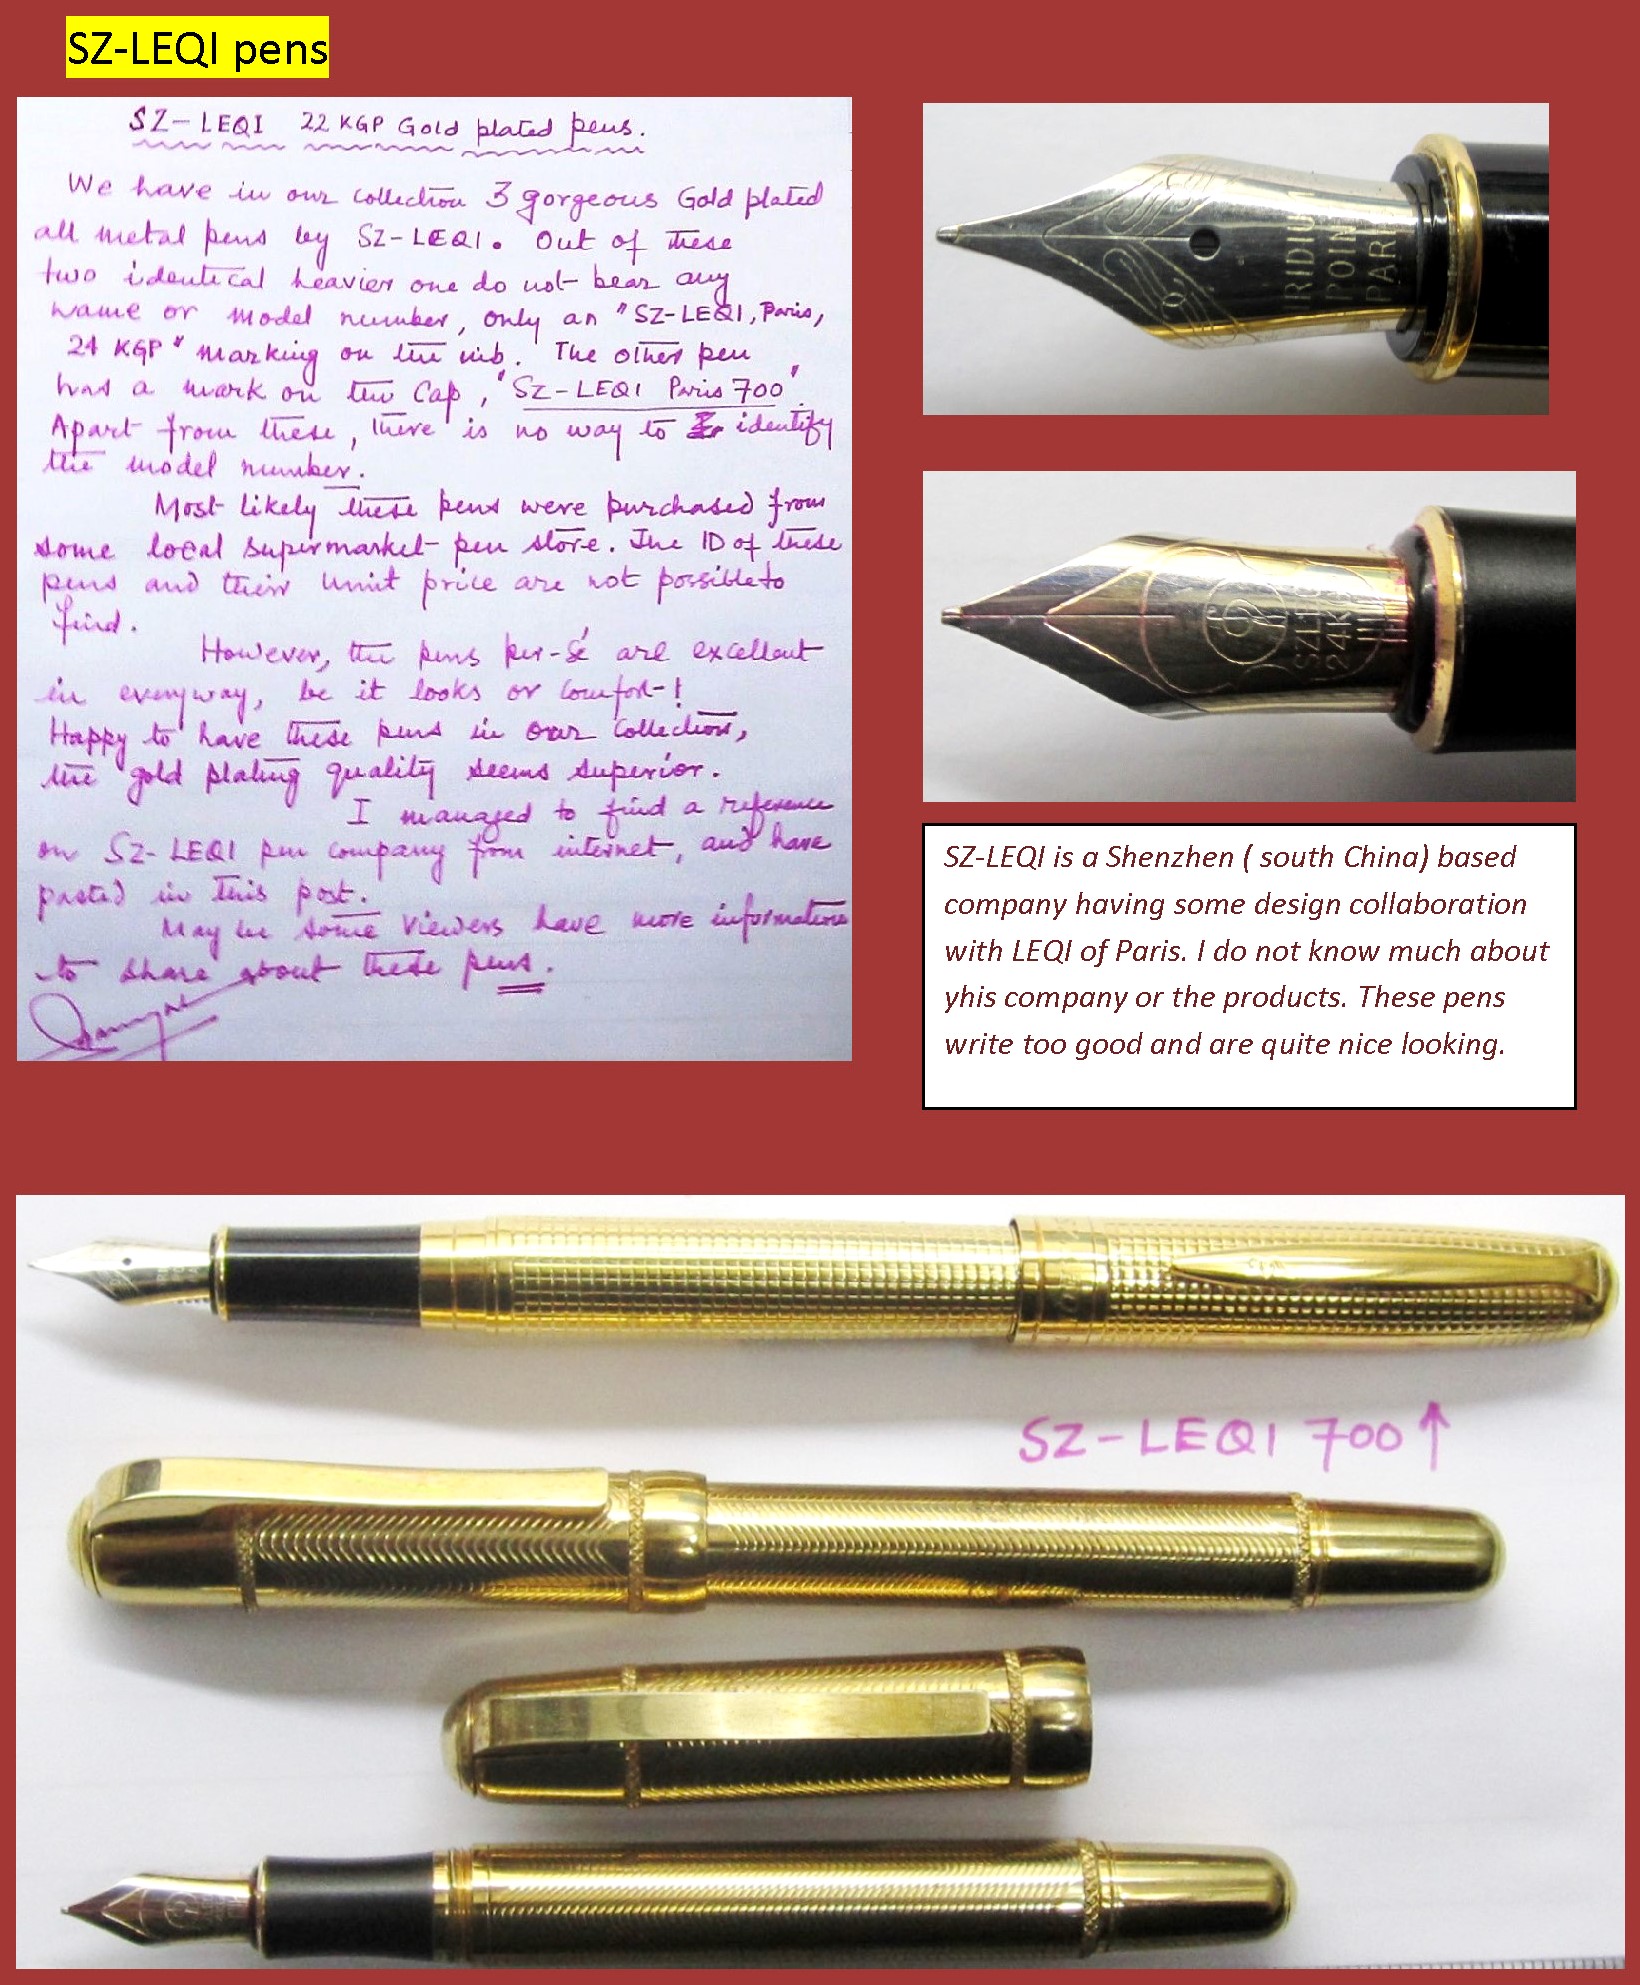 SZ-LEQI pens
SZ-LEQI 22 KGP Gold plated pens.
We have in our collection 3 gorgeous Gold plated
all metal pens by SZ-LEQI. Out of these
two identical heavier one do not bear any
name or model number, only an "SZ-LEQI, Paris,
24 KGP" marking on the nib. The other pen
has a mark on the Cap, "SZ-LEQI Paris 700".
Apart from these, there is no way to identify
the model number.
Most likely these pens were purchased from
some local supermarket pen store. The ID of these
pens and their unit price are not possible to
find.
However, the pens per-sé are excellent
in everyway, be it looks or comfort!
Happy to have these pens in our collection,
the gold plating quality seems superior.
I managed to find a reference
on SZ-LEQI pen company from internet, and have
pasted in this post.
May be some viewers have more information
to share about these pens.
IRIDIUM
POINT
PARI
SZLE
24K
SZ-LEQI is a Shenzhen ( south China) based
company having some design collaboration
with LEQI of Paris. I do not know much about
yhis company or the products. These pens
write too good and are quite nice looking.
SZ-LEQI 700 ↑